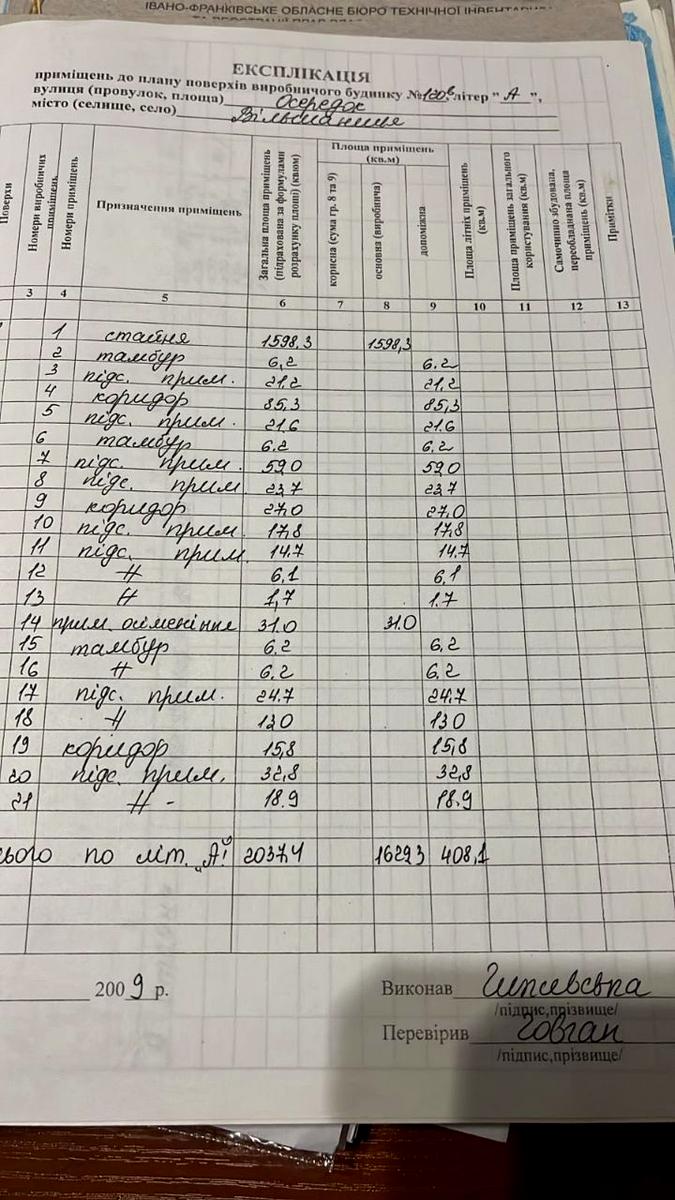 ІВАНО-ФРАНКІВСЬКЕ ОБЛАСНЕ БЮРО ТЕХНІЧНОЇ ІНВЕНТАР
ЕКСПЛІКАЦІЯ
приміщень до плану поверхів виробничого будинку № 120б літер " А ",
вулиця (провулок, площа) Осередок
місто (селище, село) Вільшаниця
Поверхи
Номери виробничих приміщень
Номери приміщень
Призначення приміщень
Загальна площа приміщень (підрахована за формулами розрахунку площі) (квюм)
Площа приміщень (кв.м)
корисна (сума гр. 8 та 9)
основна (виробнича)
допоміжна
Площа літніх приміщень (кв.м)
Площа приміщень загального користування (кв.м)
Самочинно збудована, переобладнана площа приміщень (кв.м)
Примітки
3 4 5 6 7 8 9 10 11 12 13
1 стайня 1598,3 1598,3
2 тамбур 6,2 6.2
3 підс. прим. 21,2 21,2
4 коридор 85,3 85,3
5 підс. прим. 21.6 21.6
6 тамбур 6.2 6.2
7 підс. прим. 59.0 59.0
8 підс. прим 23,7 23,7
9 коридор 27,0 27,0
10 підс. прим. 17,8 17,8
11 підс. прим. 14.7 14.7
12 -//- 6,1 6,1
13 -//- 1,7 1.7
14 прим. осіменіння 31.0 31.0
15 тамбур 6,2 6,2
16 -//- 6.2 6.2
17 підс. прим. 24.7 24.7
18 -//- 13.0 13.0
19 коридор 15,8 15,8
20 підс. прим. 32,8 32,8
21 -//- 18.9 18.9
ього по літ. „А" 2037.4 1629.3 408,1
2009 р.
Виконав
/підпис,прізвище/
Перевірив Човган
/підпис,прізвище/